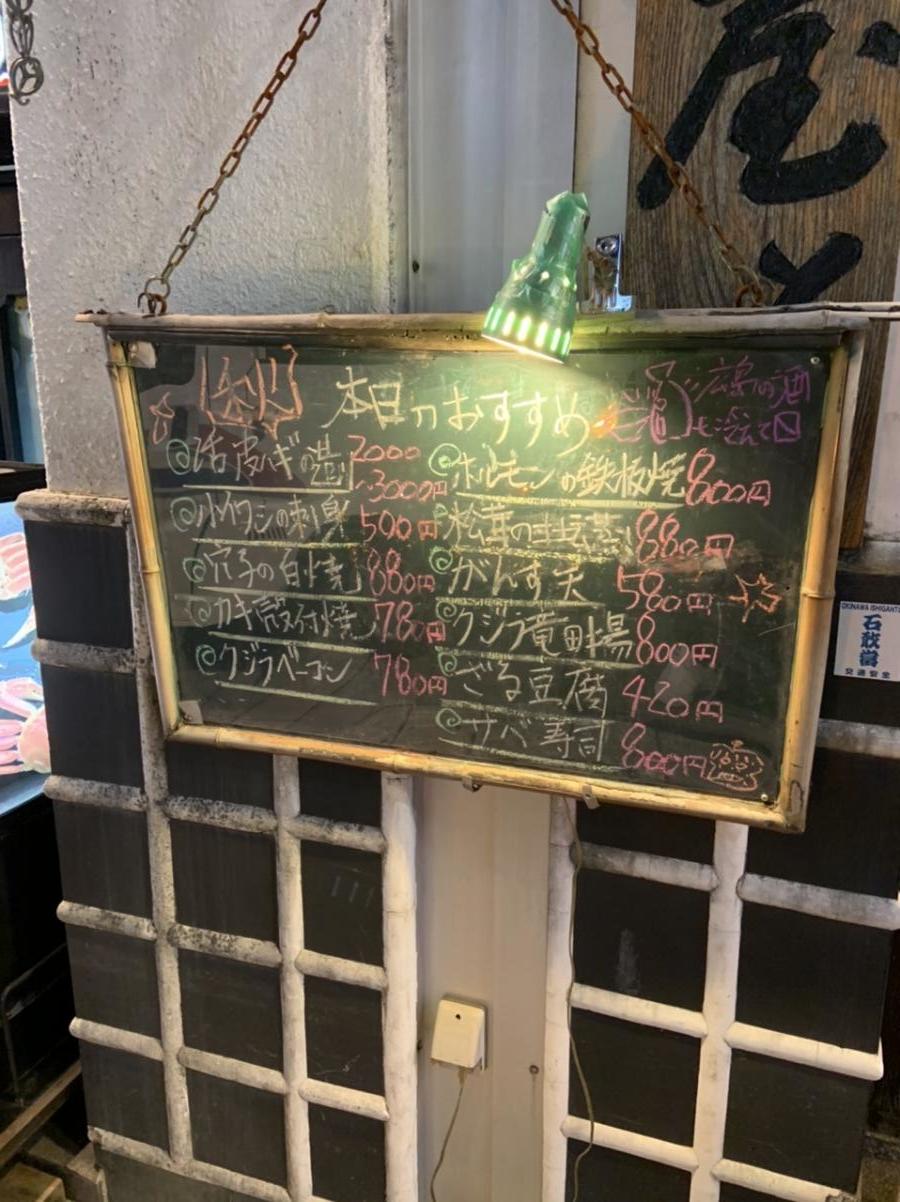 本日のおすすめ
広島の酒
も冷えて〼
活皮ハギの造り 2000
~3000円
小イワシの刺身 500円
穴子の白焼 880円
カキ殻付焼 780円
クジラベーコン 780円
ホルモンの鉄板焼 800円
松茸の土瓶蒸し 880円
がんす天 580円
クジラ竜田揚 800円
ざる豆腐 420円
サバ寿司 800円
OKINAWA ISHIGANTO
石敢當
交通安全